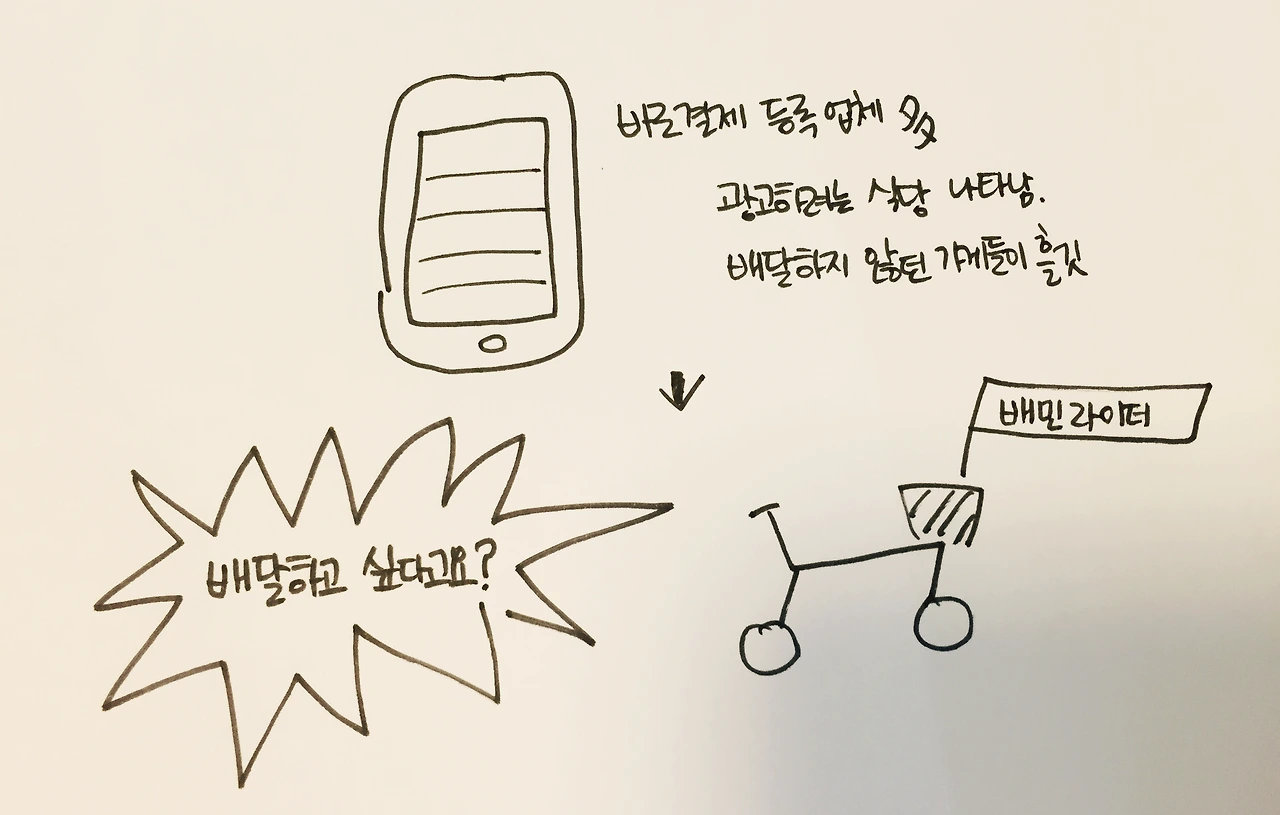 바로결제 등록 업체 多
광고하려는 식당 나타남.
배달하지 않던 가게들이 흘깃
배민라이더
배달하고 싶다고요?